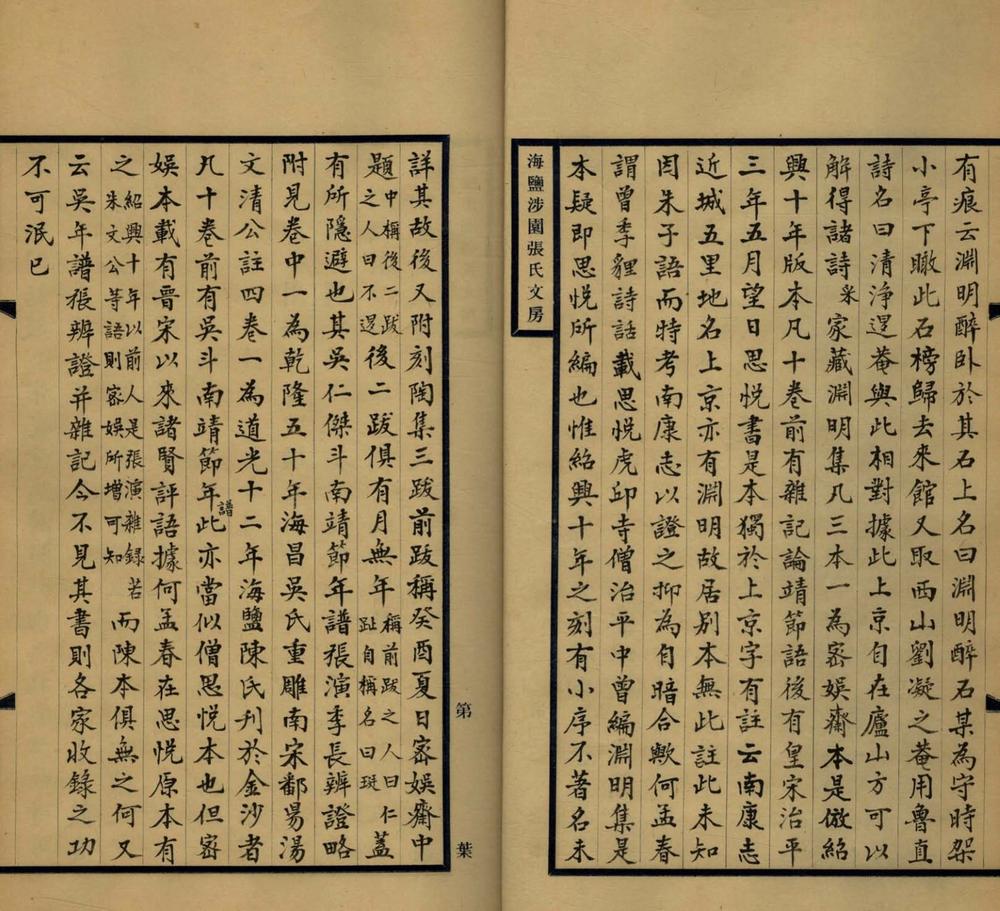 有痕云淵明醉卧於其石上名曰淵明醉石某為守時架
小亭下瞰此石榜歸去來館又取西山劉凝之菴用魯直
詩名曰清浄退菴與此相對據此上京自在廬山方可以
解得諸詩采家藏淵明集凡三本一為宻娱齋本是倣紹
興十年版本凡十巻前有雜記論靖節語後有皇宋治平
三年五月望日思悦書是本獨於上京字有註云南康志
近城五里地名上京亦有淵明故居别本無此註此未知
因朱子語而特考南康志以證之抑為自暗合歟何孟春
謂曾季貍詩話載思悦虎邱寺僧治平中曾編淵明集是
本疑即思悦所編也惟紹興十年之刻有小序不著名未
海鹽涉園張氏文房
詳其故後又附刻陶集三跋前跋稱癸酉夏日宻娱齋中
題中稱後二跋之人曰不遑後二跋俱有月無年稱前跋之人曰仁趾自稱名曰珽蓋
有所隱避也其吳仁傑斗南靖節年譜張演季長辨證略
附見巻中一為乾隆五十年海昌吳氏重雕南宋鄱昜湯
文清公註四巻一為道光十二年海鹽陳氏刊於金沙者
凡十巻前有吳斗南靖節年譜此亦當似僧思悦本也但宻
娱本載有晋宋以來諸賢評語據何孟春在思悦原本有
之紹興十年以前人是張演雜録若朱文公等語則宻娱所增可知而陳本俱無之何又
云吳年譜張辨證并雜記今不見其書則各家收錄之功
不可泯已
第
葉